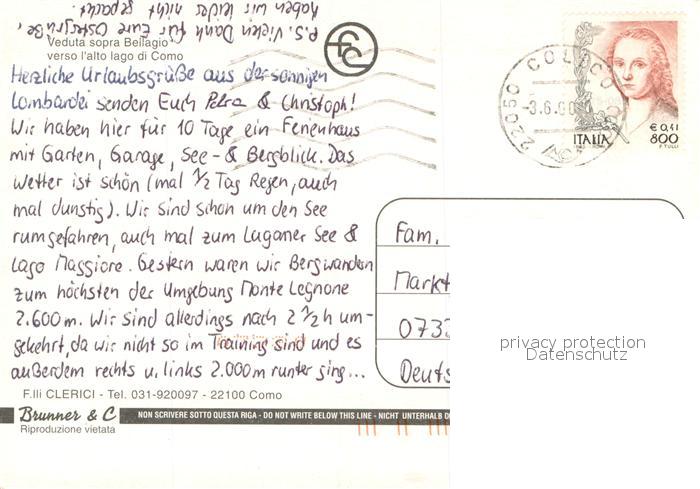 P.S. Vielen Dank für Eure Ostergrüße,
haben wir leider nicht gepackt.
Veduta sopra Bellagio
verso l'alto lago di Como
Herzliche Urlaubsgrüße aus der sonnigen
Lombardei senden Euch Petra & Christoph!
Wir haben hier für 10 Tage ein Ferienhaus
mit Garten, Garage, See- & Bergblick. Das
Wetter ist schön (mal 1/2 Tag Regen, auch
mal dunstig). Wir sind schon um den See
rumgefahren, auch mal zum Luganer See &
Lago Maggiore. Gestern waren wir Bergwandern
zum höchsten der Umgebung Monte Legnone
2.600 m. Wir sind allerdings nach 2 1/2 h um-
gekehrt, da wir nicht so im Training sind und es
außerdem rechts u. links 2.000 m runter ging...
22050 COLICO
-3.6.00
ITALIA
€ 0,41
800
F. TULLI
Fam.
Markt
0733
Deuts
privacy protection
Datenschutz
F.lli CLERICI - Tel. 031-920097 - 22100 Como
Brunner & C
NON SCRIVERE SOTTO QUESTA RIGA - DO NOT WRITE BELOW THIS LINE - NICHT UNTERHALB D
Riproduzione vietata